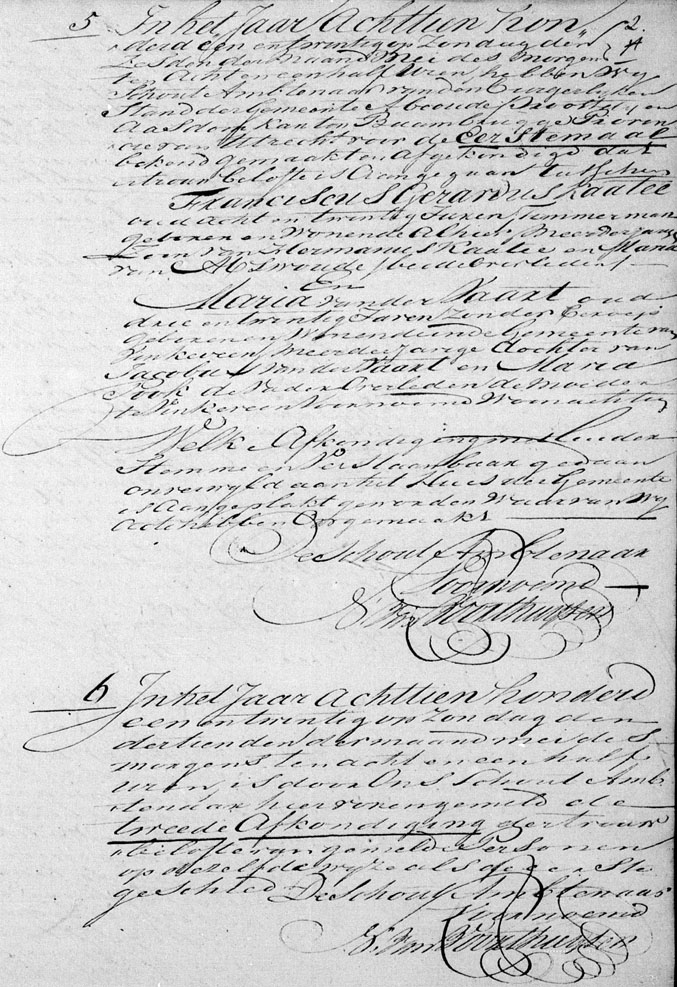 5 In het Jaar Achttien hon„ 2.
„derd een en twintig op Zondag den
Zesden der maand Mei des morgens
ten Acht en een half Uren, hebben Wij
Schout Ambtenaar van den Burgerlijken
Stand der Gemeente Abcoude Proostdij en
Aasdom, Kanton Baambrugge Provin
cie van Utrecht voor de Eerstemaal
bekend gemaakt en Afgekondigd dat
er trouwbelofte is Aangegaan tusschen
Franciscus Gerardus Kaatee
oud Acht en twintig Jaren Timmerman
geboren en Wonende Alhier, Meerderjarige
Zoon van Hermanus Kaatee en Maria
van Abswoude / beide Overleden /
En
Maria van der Vaart oud
drie en twintig Jaren Zonder beroep
geboren en Wonende in de Gemeente van
Vinkeveen, Meerderjarige dochter van
Jacobus van der Vaart en Maria
Kook, de Vader Overleden de moeder
te Vinkeveen Voornoemd Woonachtig
Welke Afkondiging met luider
Stemme en Verstaanbaar gedaan
onverwijld aan het Huis der Gemeente
is Aangeplakt geworden Waar van Wij
Acte hebben Opgemaakt
De Schout Ambtenaar
Voornoemd
6 In het Jaar Achttien honderd
een en twintig op Zondag den
dertienden der maand mei des
morgens ten acht en een half
uren, is door Ons Schout Amb„
„tenaar hier vorengemeld de
tweede Afkondiging der trouw
„belofte van gemelde Personen
op dezelfde wijze als de eerste
geschied. De Schout Ambtenaar
Voornoemd